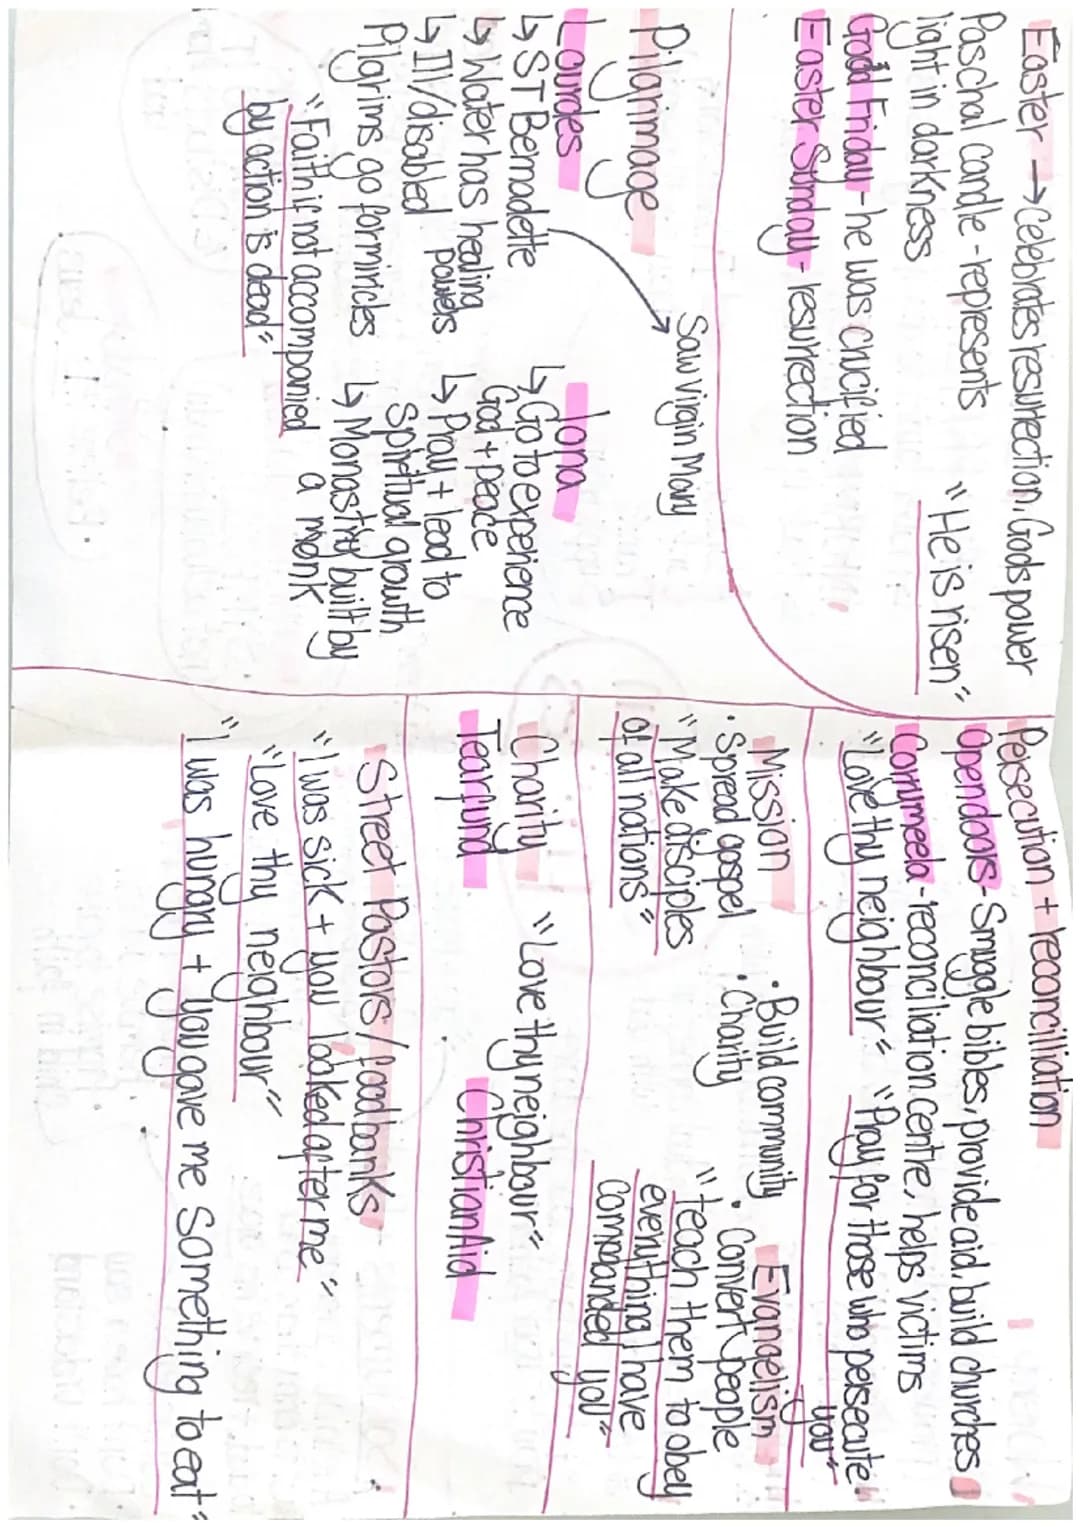 Easter → Celebrates resurrection, Gods power
Paschal candle - represents
light in darkness
"He is risen"
Good Friday - he was crucified
Easter Sunday - resurrection
Pilgrimage
Saw Virgin Mary
Lourdes
↳ ST Bernadette
↳ Water has healing
powers
↳ Ill/disabled
Pilgrims go for miricles
"Faith if not accompanied
by action is dead"
Iona
↳ Go to experience
God + peace
↳ Pray + lead to
Spiritual growth
↳ Monastry built by
a monk
Persecution + reconcilliation
Opendoors - Smuggle bibles, provide aid, build churches
Corrymeela - reconciliation centre, helps victims
"Love thy neighbour" "Pray for those who persecute
you"
Mission
· Spread gospel
· Build community
· Charity
"Make disciples
of all nations"
Evangelism
· Convert people
"teach them to obey
everything I have
commanded you"
Charity "Love thy neighbour"
Tearfund Christian Aid
Street Pastors / foodbanks
"I was sick + you looked after me"
"Love thy neighbour"
"I was hungry + you gave me something to eat"